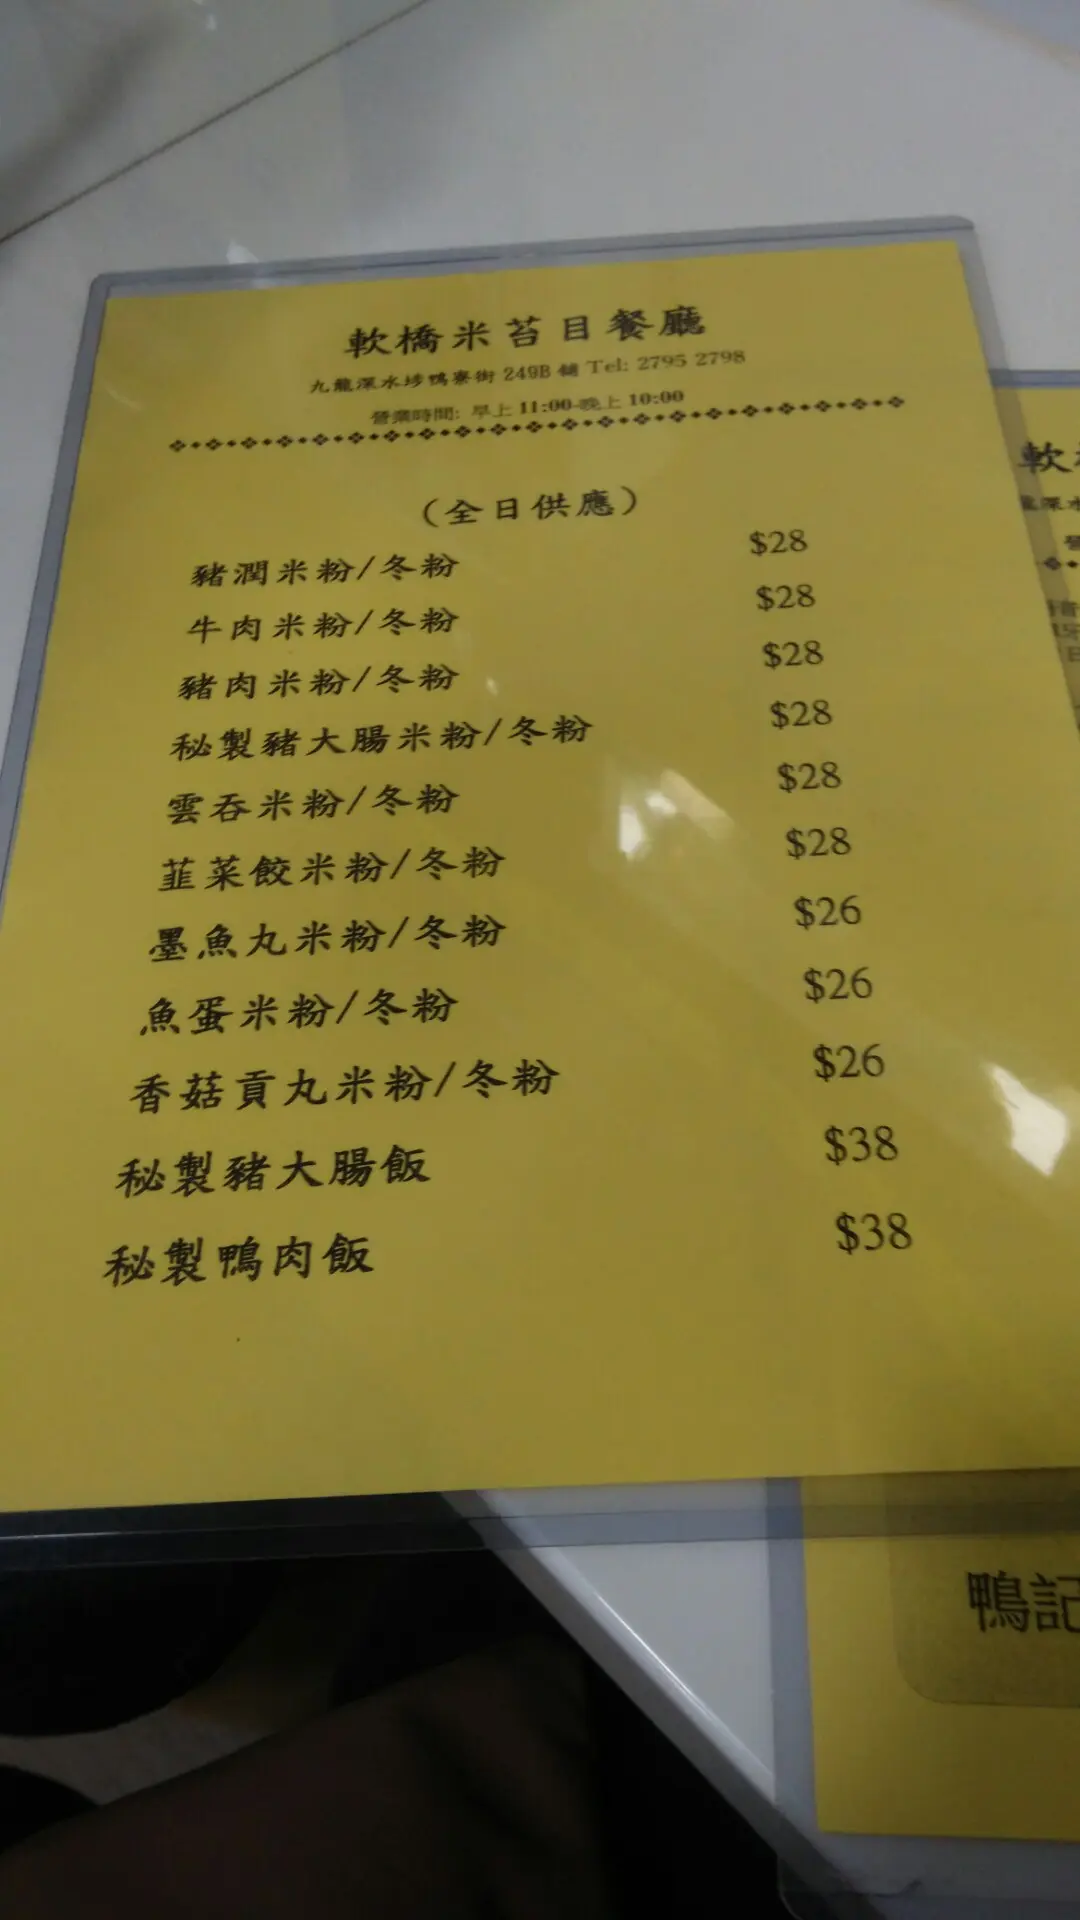 軟橋米苔目餐廳
九龍深水埗鴨寮街 249B 舖 Tel: 2795 2798
營業時間: 早上 11:00-晚上 10:00
(全日供應)
豬潤米粉/冬粉 $28
牛肉米粉/冬粉 $28
豬肉米粉/冬粉 $28
秘製豬大腸米粉/冬粉 $28
雲吞米粉/冬粉 $28
韮菜餃米粉/冬粉 $28
墨魚丸米粉/冬粉 $26
魚蛋米粉/冬粉 $26
香菇貢丸米粉/冬粉 $26
秘製豬大腸飯 $38
秘製鴨肉飯 $38
軟
鴨記